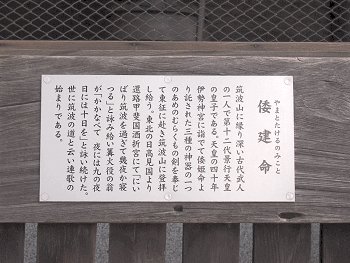 やまとたけるのみこと
倭建命
筑波山に縁り深い古代武人
の一人で第十二代景行天皇
の皇子である。天皇の四十年
伊勢神宮に詣でて倭姫命よ
り託された三種の神器の一つ
のあめのむらくもの剣を奉じ
て東征に赴き筑波山に登拝
し給う。東北の日高見国より
還路甲斐国酒折宮にて「にい
ばり筑波を過ぎて幾夜か寝
つる」と詠み給い篝火役の翁
が「かがなべて夜には九の夜
日には十日を」と詠い続けた。
世に筑波の道と云い連歌の
始まりである。